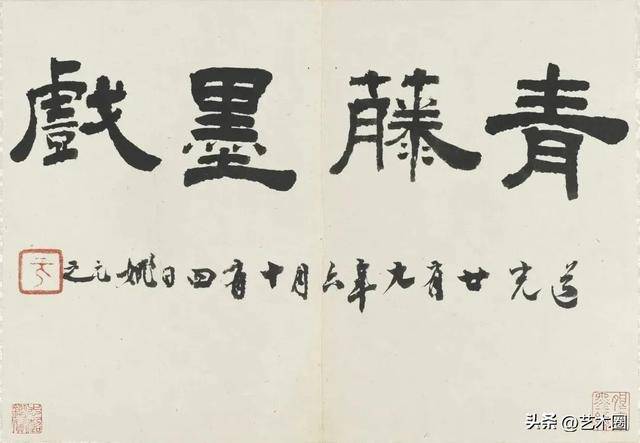 青藤墨戲
道光廿有九年六月十有四日姚元之
头条 @艺木圈